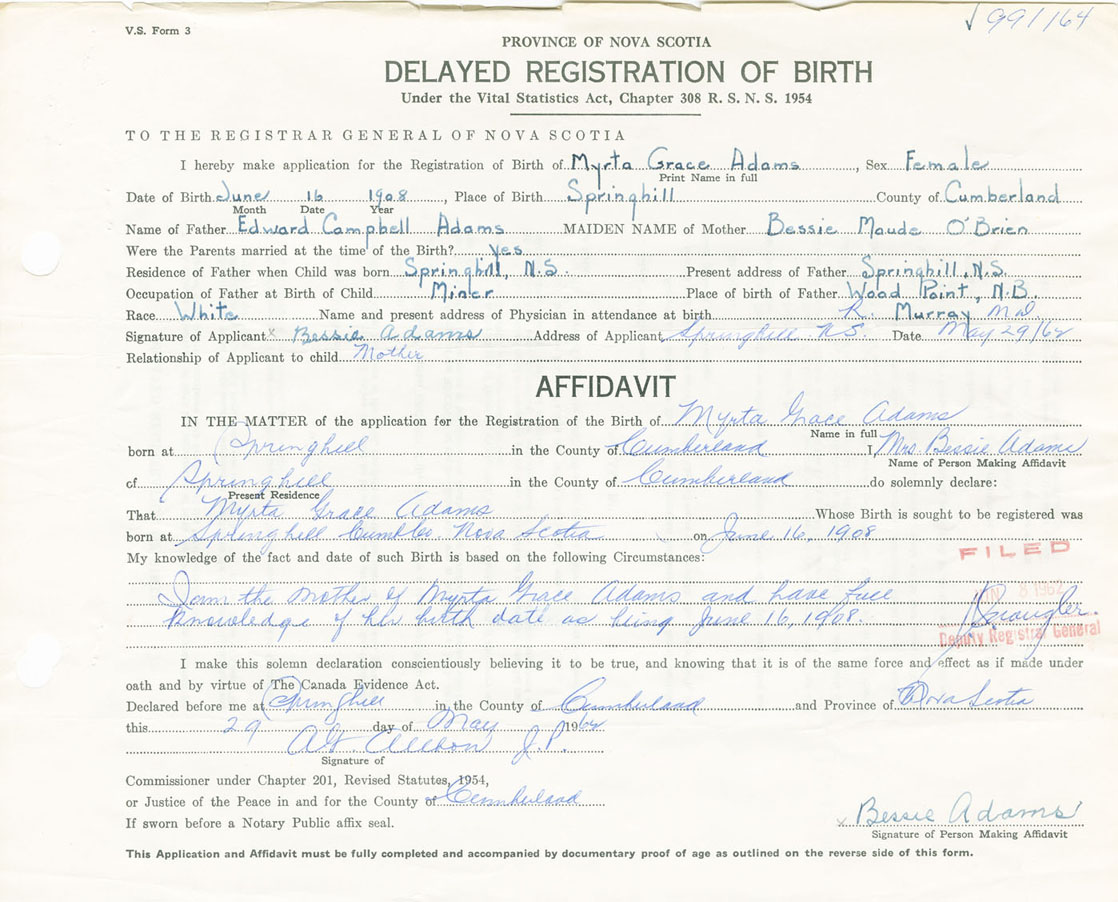 V.S. Form 3
991164
PROVINCE OF NOVA SCOTIA
DELAYED REGISTRATION OF BIRTH
Under the Vital Statistics Act, Chapter 308 R. S. N. S. 1954
TO THE REGISTRAR GENERAL OF NOVA SCOTIA
I hereby make application for the Registration of Birth of Myrta Grace Adams, Sex Female
Print Name in full
Date of Birth June 16 1908, Place of Birth Springhill County of Cumberland
Month Date Year
Name of Father Edward Campbell Adams MAIDEN NAME of Mother Bessie Maude O'Brien
Were the Parents married at the time of the Birth? Yes
Residence of Father when Child was born Springhill, N.S. Present address of Father Springhill, N.S.
Occupation of Father at Birth of Child Miner Place of birth of Father Wood Point, N.B.
Race White Name and present address of Physician in attendance at birth R. Murray M.D.
Signature of Applicant x Bessie Adams Address of Applicant Springhill N.S. Date May 29/62
Relationship of Applicant to child Mother
AFFIDAVIT
IN THE MATTER of the application for the Registration of the Birth of Myrta Grace Adams
Name in full
born at Springhill in the County of Cumberland I, Mrs. Bessie Adams
Name of Person Making Affidavit
of Springhill in the County of Cumberland do solemnly declare:
Present Residence
That Myrta Grace Adams Whose Birth is sought to be registered was
born at Springhill Cumb Co. Nova Scotia on June 16, 1908
My knowledge of the fact and date of such Birth is based on the following Circumstances:
FILED
I am the Mother of Myrta Grace Adams and have full
JUN 8 1962
Knowledge of her birth date as being June 16, 1908.
Deputy Registrar General
I make this solemn declaration conscientiously believing it to be true, and knowing that it is of the same force and effect as if made under
oath and by virtue of The Canada Evidence Act.
Declared before me at Springhill in the County of Cumberland and Province of Nova Scotia
this 29 day of May 1962
J.P.
Signature of
Commissioner under Chapter 201, Revised Statutes, 1954,
or Justice of the Peace in and for the County of Cumberland
If sworn before a Notary Public affix seal.
x Bessie Adams
Signature of Person Making Affidavit
This Application and Affidavit must be fully completed and accompanied by documentary proof of age as outlined on the reverse side of this form.